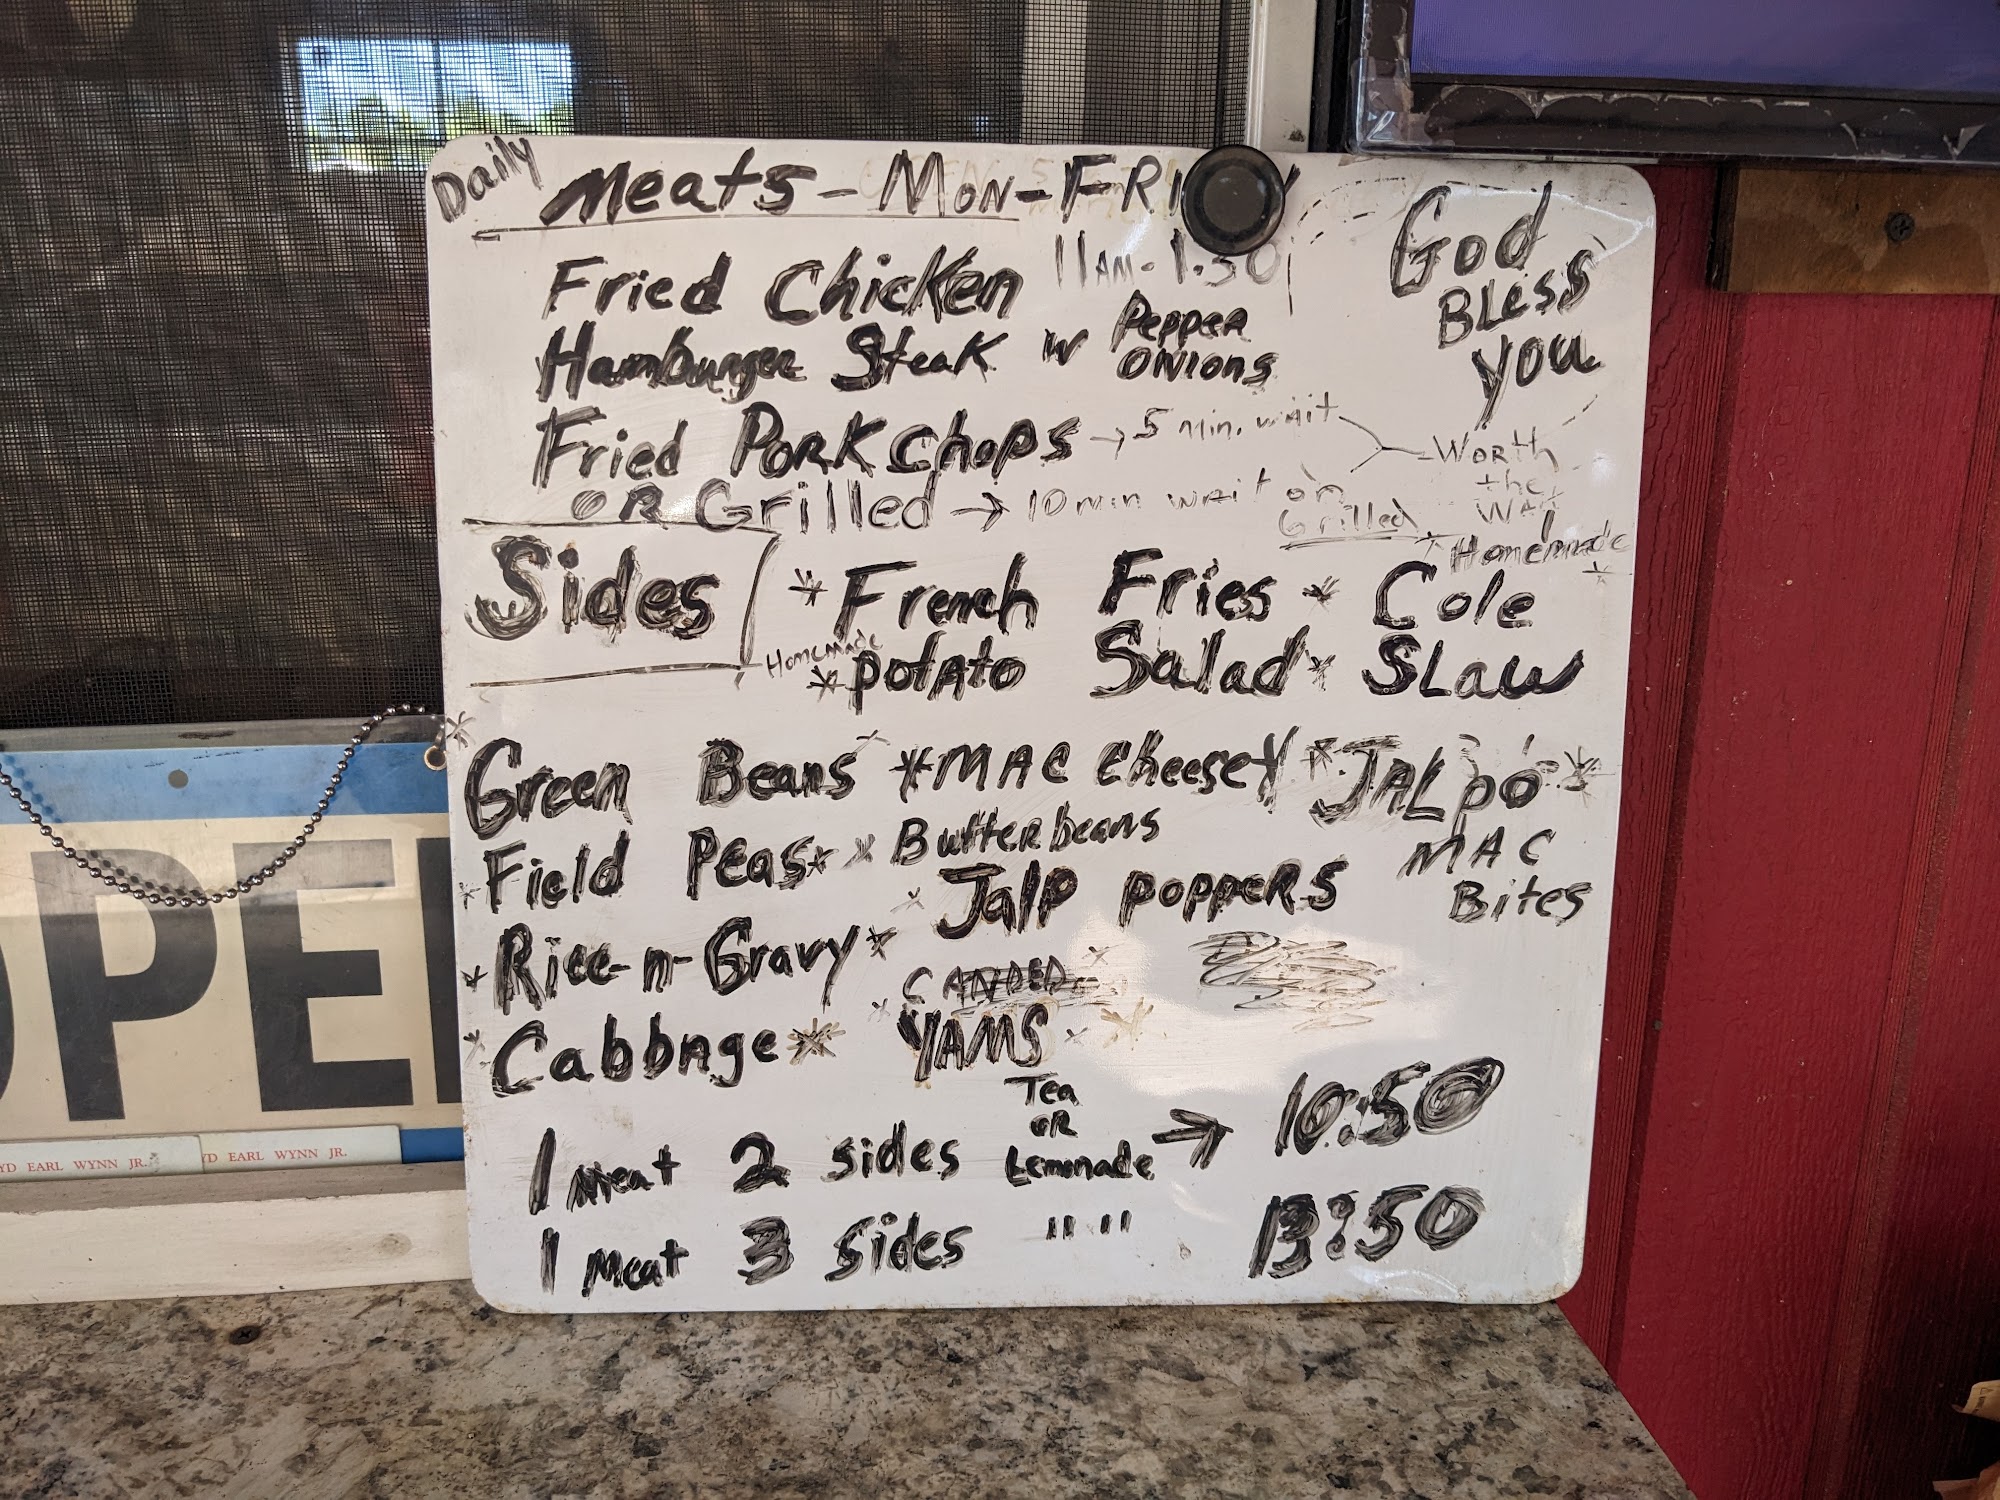 Daily
Meats - Mon - FRI
11AM - 1:30
God
Bless
you
Fried Chicken
Hamburger Steak w Pepper
ONIONS
Fried PORK Chops → 5 min. wait
OR Grilled → 10 min wait on
Grilled
Worth
the
Wait
Sides
* French Fries * Cole
Homemade
Homemade
* Potato Salad * SLaw
* Green Beans * MAC Cheese * JALpo *
MAC
Bites
* Field Peas * * Butterbeans
* Jalp poppers
* Rice-n-Gravy *
* Cabbnge * CANDED
YAMS
1 Meat 2 sides Tea
OR
Lemonade → 10:50
1 Meat 3 sides " " 13:50
OPE
YD EARL WYNN JR.
YD EARL WYNN JR.